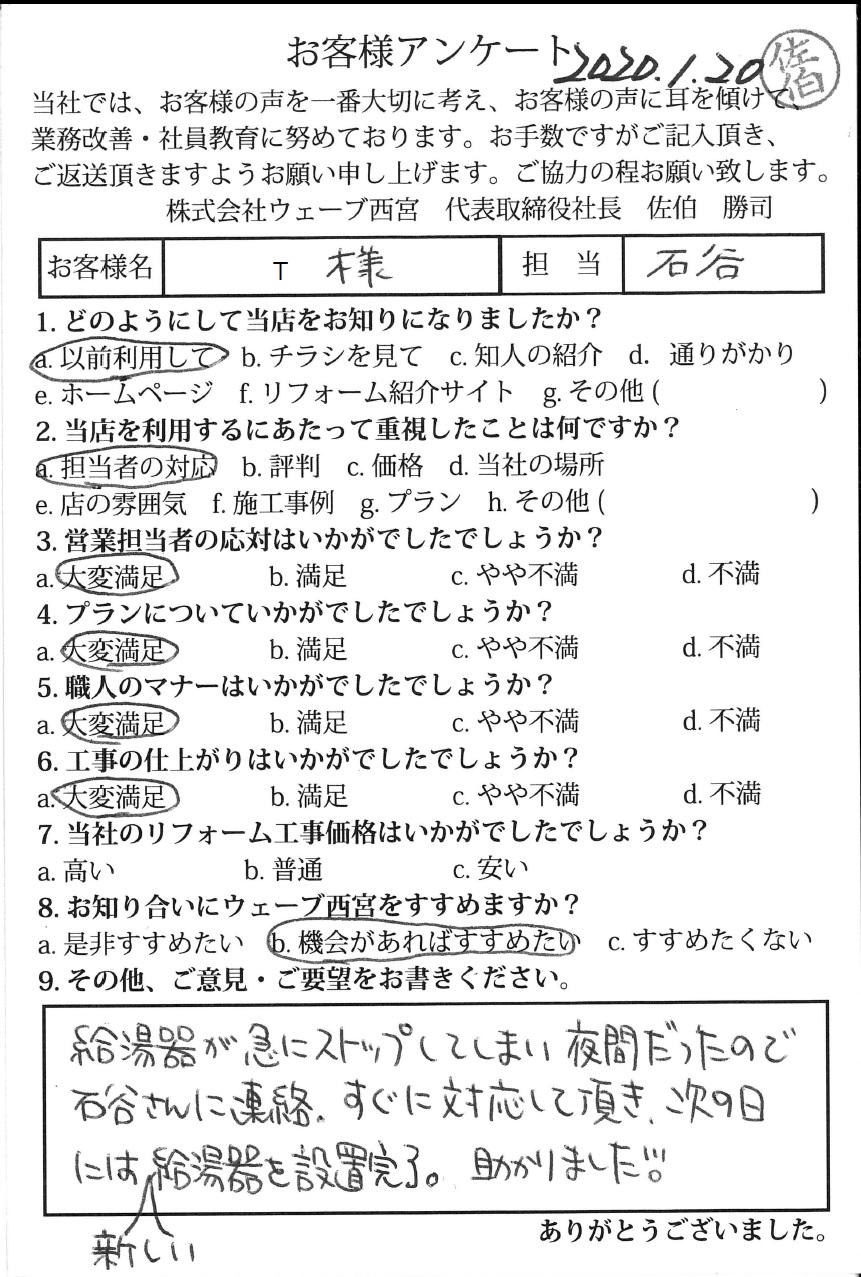 お客様アンケート 2020.1.20 佐伯
当社では、お客様の声を一番大切に考え、お客様の声に耳を傾けて、
業務改善・社員教育に努めております。お手数ですがご記入頂き、
ご返送頂きますようお願い申し上げます。ご協力の程お願い致します。
株式会社ウェーブ西宮 代表取締役社長 佐伯 勝司
お客様名 T 様 担 当 石谷
1. どのようにして当店をお知りになりましたか？
a. 以前利用して b. チラシを見て c. 知人の紹介 d. 通りがかり
e. ホームページ f. リフォーム紹介サイト g. その他 ( )
2. 当店を利用するにあたって重視したことは何ですか？
a. 担当者の対応 b. 評判 c. 価格 d. 当社の場所
e. 店の雰囲気 f. 施工事例 g. プラン h. その他 ( )
3. 営業担当者の応対はいかがでしたでしょうか？
a. 大変満足 b. 満足 c. やや不満 d. 不満
4. プランについていかがでしたでしょうか？
a. 大変満足 b. 満足 c. やや不満 d. 不満
5. 職人のマナーはいかがでしたでしょうか？
a. 大変満足 b. 満足 c. やや不満 d. 不満
6. 工事の仕上がりはいかがでしたでしょうか？
a. 大変満足 b. 満足 c. やや不満 d. 不満
7. 当社のリフォーム工事価格はいかがでしたでしょうか？
a. 高い b. 普通 c. 安い
8. お知り合いにウェーブ西宮をすすめますか？
a. 是非すすめたい b. 機会があればすすめたい c. すすめたくない
9. その他、ご意見・ご要望をお書きください。
給湯器が急にストップしてしまい夜間だったので
石谷さんに連絡、すぐに対応して頂き、次の日
には給湯器を設置完了。助かりました!!!
新しい
ありがとうございました。